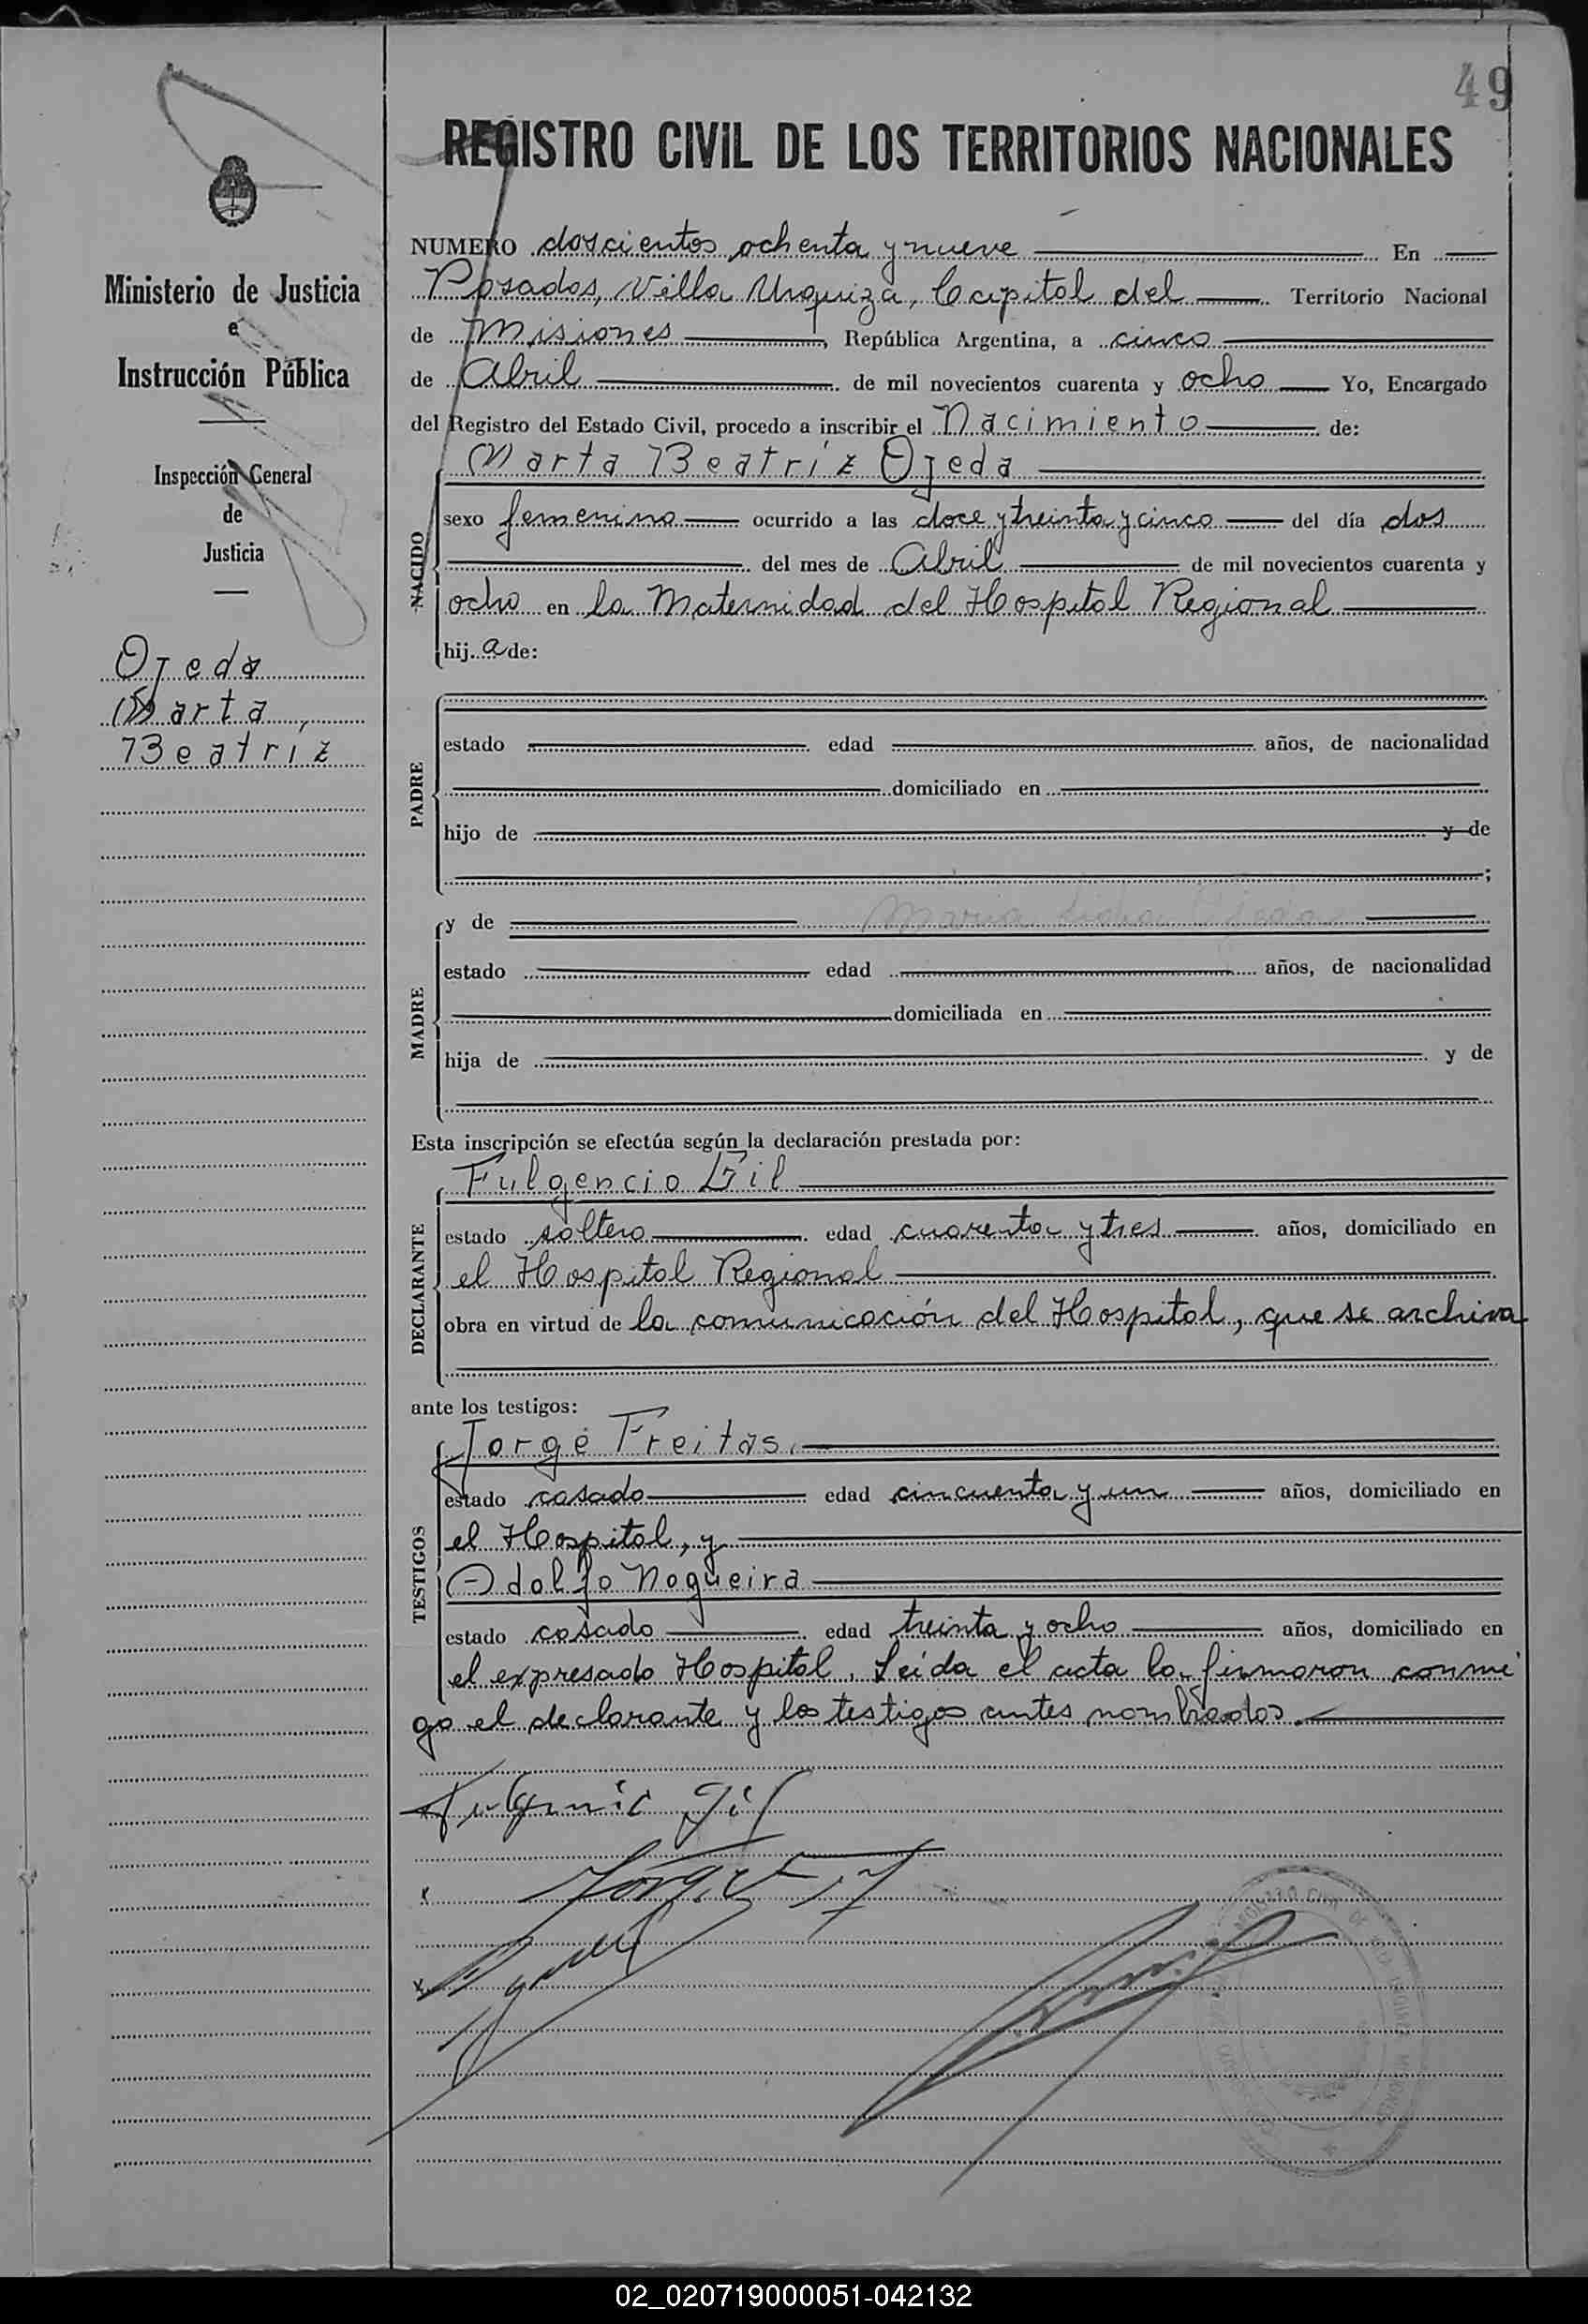 49
REGISTRO CIVIL DE LOS TERRITORIOS NACIONALES
Ministerio de Justicia
e
Instrucción Pública
Inspección General
de
Justicia
Ojeda
Marta
Beatríz
NUMERO doscientos ochenta y nueve En
Posadas, Villa Urquiza, Capital del Territorio Nacional
de Misiones, República Argentina, a cinco
de Abril de mil novecientos cuarenta y ocho Yo, Encargado
del Registro del Estado Civil, procedo a inscribir el Nacimiento de:
NACIDO
Marta Beatríz Ojeda
sexo femenino ocurrido a las doce y treinta y cinco del día dos
del mes de Abril de mil novecientos cuarenta y
ocho en la Maternidad del Hospital Regional
hija de:
PADRE
estado edad años, de nacionalidad
domiciliado en
hijo de y de
;
MADRE
y de Maria
estado edad años, de nacionalidad
domiciliada en
hija de y de
Esta inscripción se efectúa según la declaración prestada por:
DECLARANTE
Fulgencio Gil
estado soltero edad cuarenta y tres años, domiciliado en
el Hospital Regional
obra en virtud de la comunicación del Hospital, que se archiva
ante los testigos:
TESTIGOS
Jorge Freitas
estado casado edad cincuenta y un años, domiciliado en
el Hospital, y
Adolfo Nogueira
estado casado edad treinta y ocho años, domiciliado en
el expresado Hospital. Leída el acta la firmaron conmi
go el declarante y los testigos antes nombrados.
Fulgencio Gil
REGISTRO CIVIL DE
02_020719000051-042132